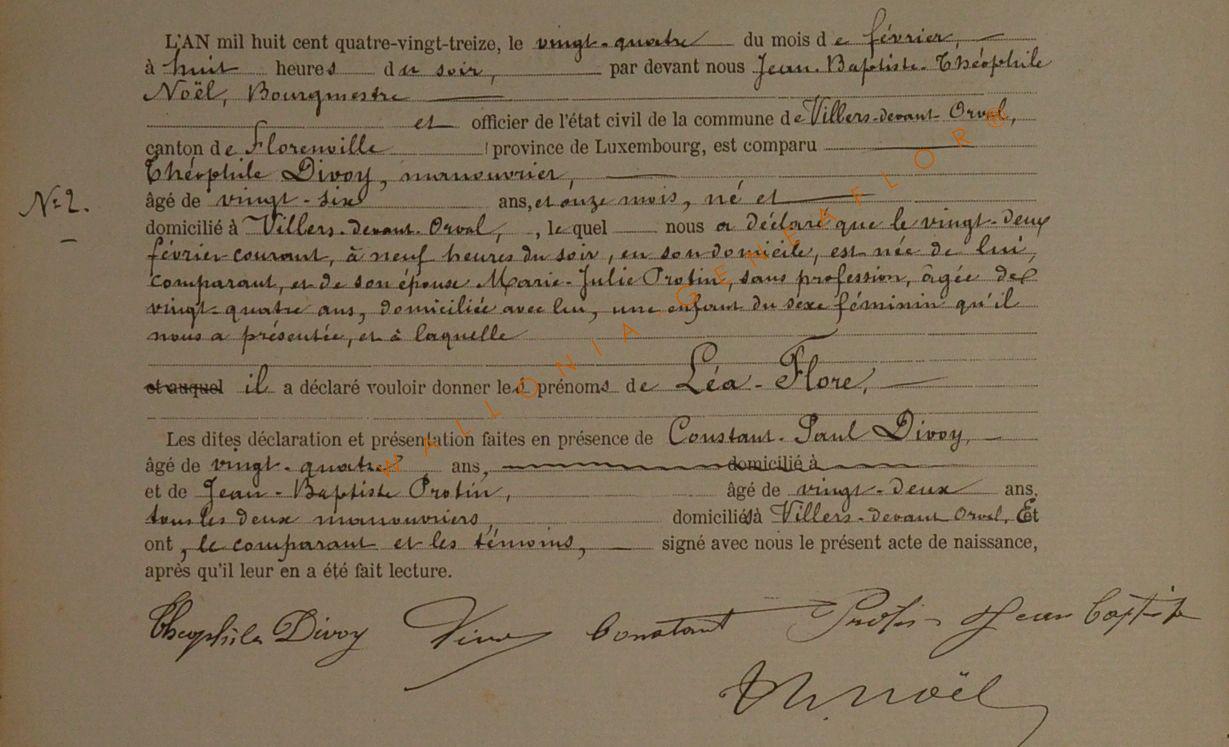 L'AN mil huit cent quatre-vingt-treize, le vingt-quatre du mois de février,
à huit heures du soir, par devant nous Jean-Baptiste-Théophile
Noël, Bourgmestre
et officier de l'état civil de la commune de Villers-devant-Orval,
canton de Florenville province de Luxembourg, est comparu
Théophile Divoy, manouvrier,
N° 2. âgé de vingt-six ans, et onze mois, né et
domicilié à Villers-devant-Orval, , lequel nous a déclaré que le vingt-deux
février courant, à neuf heures du soir, en son domicile, est née de lui,
comparant, et de son épouse Marie-Julie Protin, sans profession, âgée de
vingt-quatre ans, domiciliée avec lui, une enfant du sexe féminin qu'il
nous a présentée, et à laquelle
et auquel il a déclaré vouloir donner les prénoms de Léa-Flore,
Les dites déclaration et présentation faites en présence de Constant-Paul Divoy,
âgé de vingt-quatre ans, domicilié à
et de Jean-Baptiste Protin, âgé de vingt-deux ans,
tous les deux manouvriers, domiciliés à Villers-devant-Orval, Et
ont, le comparant et les témoins, signé avec nous le présent acte de naissance,
après qu'il leur en a été fait lecture.
Theophile Divoy Constant Protin Jean Baptiste
Noël
WALLONIA-GENEAFLOR®